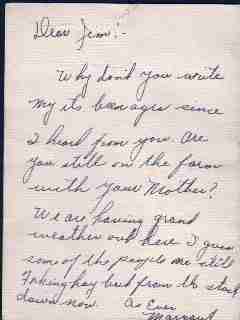 Dear Jean:-
Why don't you write
My its been ages since
I heard from you. Are
you still on the farm
with your Mother?
We are having grand
weather out here I guess
some of the people are still
taking hay but from the
down now. As Ever
Margaret